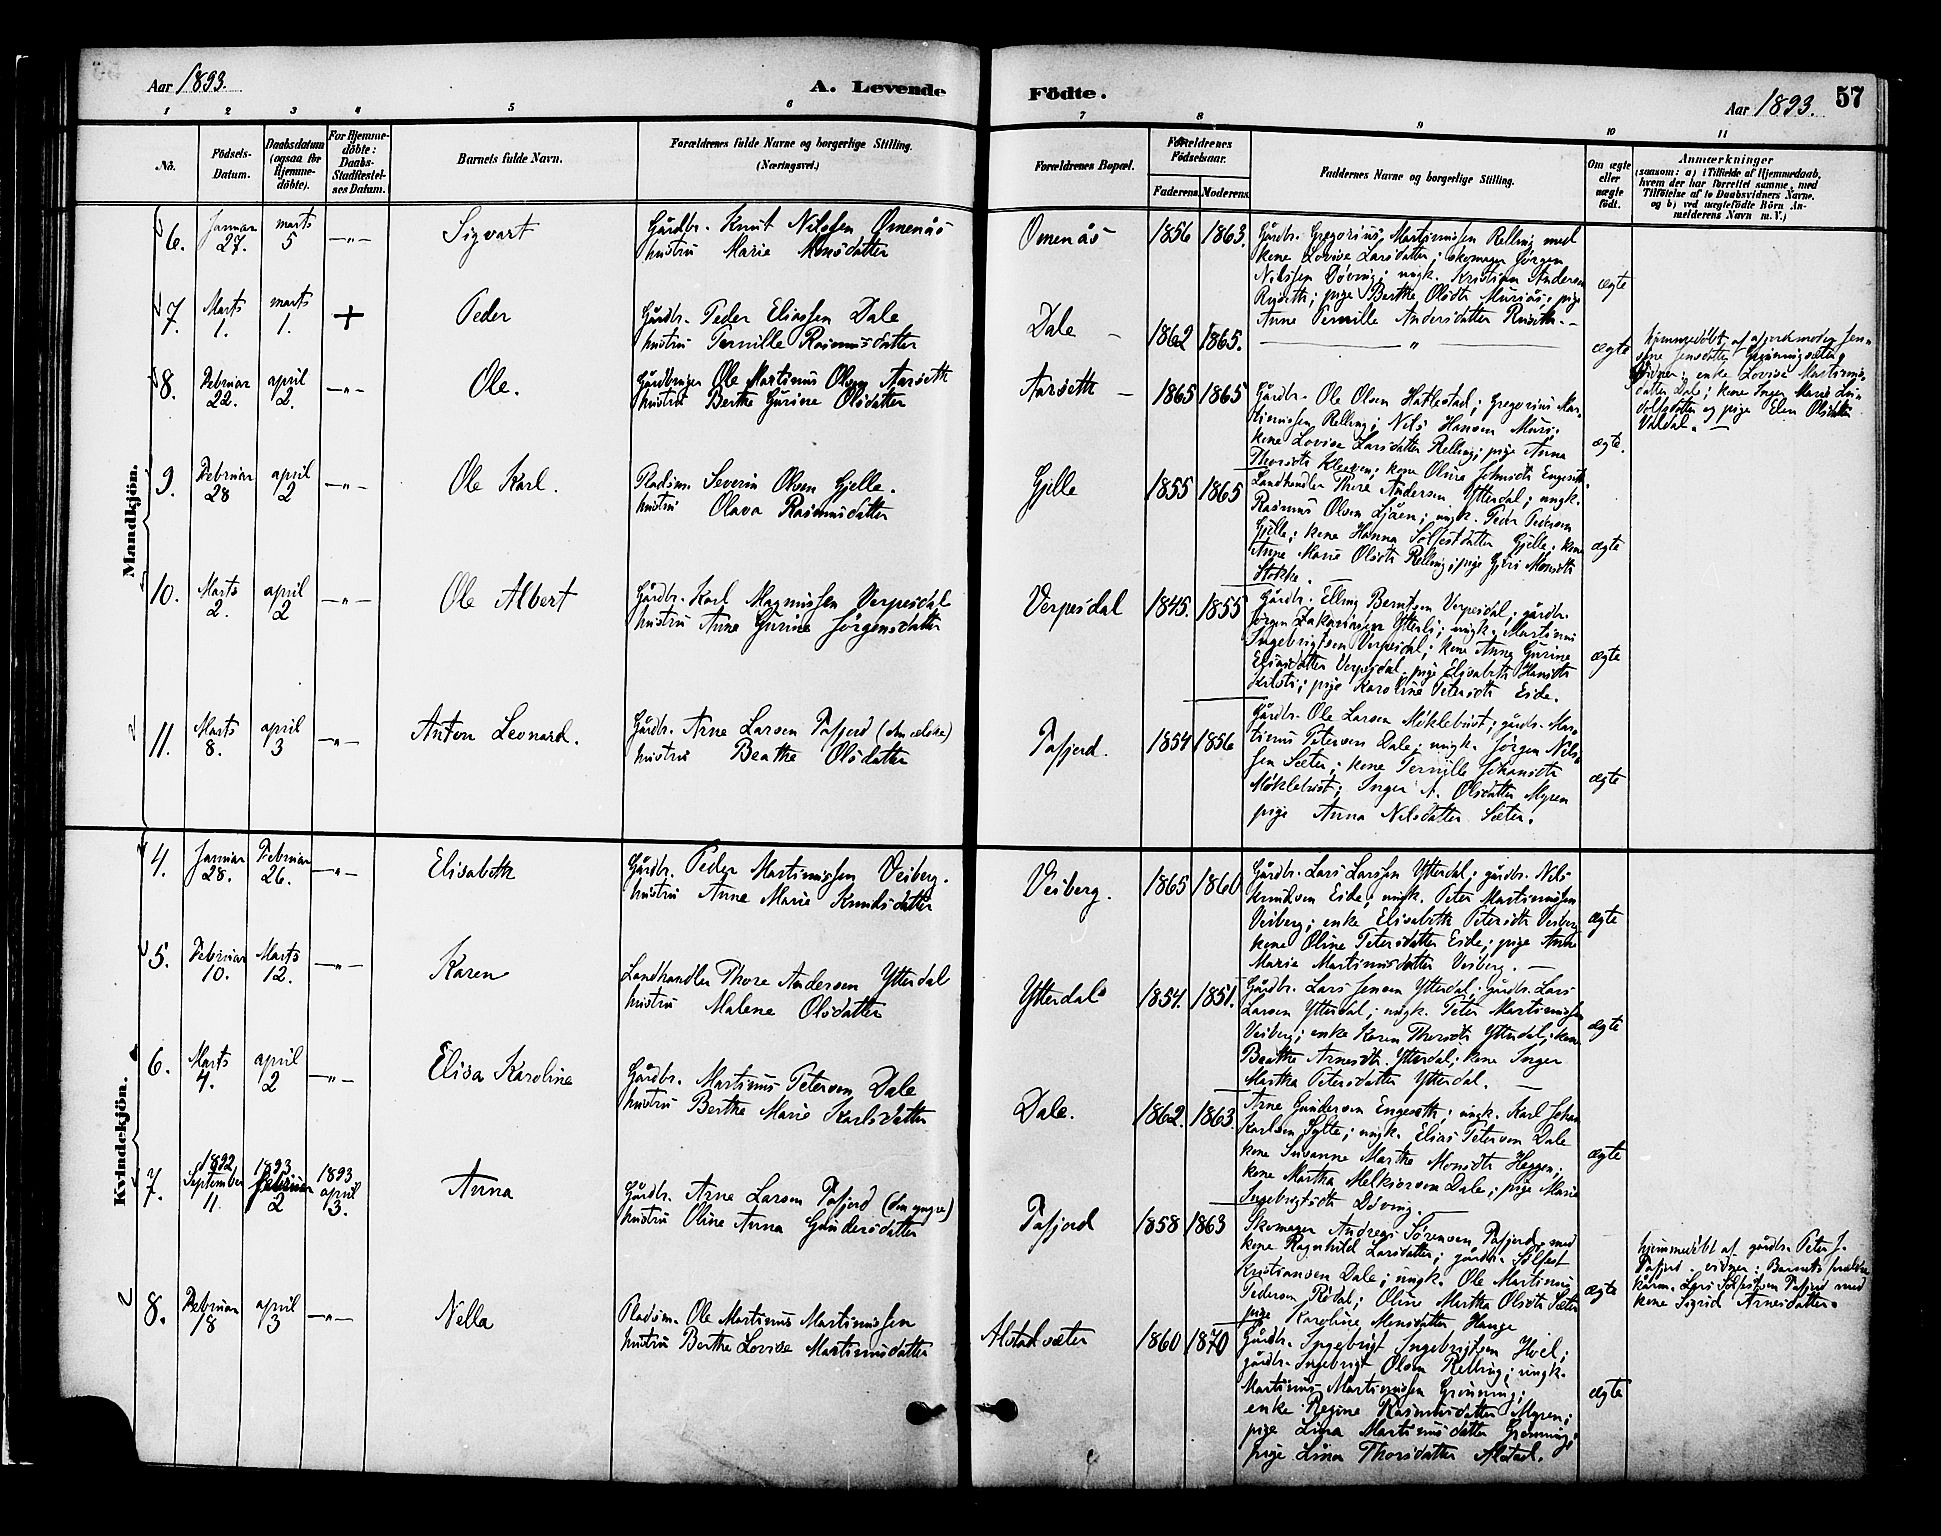 Aar 1893.
A. Levende
Födte.
Aar 1893.
57
1 2 3 4 5 6 7 8 9 10 11
No.
Födsels-
Datum.
Daabsdatum
(ogsaa for
Hjemme-
döbte).
For Hjemme-
döbte:
Daabs-
Stadfæstel-
ses Datum.
Barnets fulde Navn.
Forældrenes fulde Navne og borgerlige Stilling.
(Næringsvei.)
Forældrenes Bopæl.
Forældrenes
Födselsaar.
Faderens. Moderens.
Faddernes Navne og borgerlige Stilling.
Om ægte
eller
uægte
födt.
Anmærkninger
(saasom: a) i Tilfælde af Hjemmedaab,
hvem der har forrettet samme, med
Tilföielse af to Daabsvidners Navne,
og b) ved uægtefödte Börn An-
melderens Navn m. V.)
Mandkjön.
6.
Januar
27.
marts
5
—„—
Sigvart
Gårdbr. Knut Nilssen Omenås
hustru Marie Monsdatter
Omenås
1856 1863.
Gårdbr. Gregorius Martinussen Relling med
kone Lovise Larsdatter; skomager Jørgen
Nilssen Døving; ungk. Kristian Andersen
Ruseth; pige Berthe Olsdtr Muriås; pige
Anne Pernille Andersdatter Ruseth. —
ægte
7.
Marts
1.
marts
1.
+
Peder
Gårdbr. Peder Eliassen Dale
hustru Pernille Rasmusdatter
Dale —
1862 1865.
— „ —
ægte
hjemmedöbt af jordemoder Jen-
sine Jensdatter Grønningsæter,
Vidner: enke Lovise Martinus-
datter Dale; kone Inger Marie Lu-
dolfsdatter og pige Elen Olsdatter
Valdal. —
8.
Februar
22.
april
2.
—„—
Ole.
Gårdbruger Ole Martinus Olsen Aarseth
hustru Berthe Gurine Olsdatter
Aarseth —
1865 1865
Gårdbr. Ole Olsen Hatlestad; Gregorius Mar-
tinussen Relling; Nils Hansen Muri.
kone Lovise Larsdatter Relling; pige Anna
Thorsdtr Kleiven; kone Oline Johnsdtr Engeseth.
ægte.
9.
Februar
28
april
2
—„—
Ole Karl.
Pladsm. Severin Olsen Gjelle.
hustru Olava Rasmusdatter
Gjelle
1855 1865
Landhandler Thore Andersen Ytterdal; ungk.
Rasmus Olsen Ljåen; ungk. Peder Pedersen
Gjelle; kone Hanna Sølfestdatter Gjelle; kone
Anne Marie Olsdtr Relling; pige Guri Monsdtr
Stokke.
ægte
10.
Marts
2.
april
2
—„—
Ole Albert
Gårdbr. Karl Magnussen Verpesdal
hustru Anne Gurine Jørgensdatter
Verpesdal
1845. 1855
Gårdbr. Elling Berntsen Verpesdal; gårdbr.
Jørgen Zakariassen Ytterli; ungk. Martinus
Ingebrigtsen Verpesdal; kone Anne Gurine
Eliasdatter Verpesdal; pige Elisabeth Hansdtr
; pige Karoline Petersdtr Eide.
ægte
11.
Marts
8.
april
3
—„—
Anton Leonard.
Gårdbr. Arne Larsen Tafjord (den ældre)
hustru Beathe Olsdatter
Tafjord.
1854 1856
Gårdbr. Ole Larsen Møklebust; gårdbr. Mar-
tinus Petersen Dale; ungk. Jørgen Nils-
sen Sæter; kone Pernille Johansdtr
Møklebust; Inger A. Olsdatter Myren
pige Anna Nilsdatter Sæter.
ægte
Kvindekjön.
4.
Januar
28.
Februar
26.
—„—
Elisabeth
Gårdbr. Peder Martinussen Veiberg.
hustru Anne Marie Knudsdatter
Veiberg.
1865 1860
Gårdbr. Lars Larssen Ytterdal; gårdbr. Nils
Knudsen Eide; ungk. Peter Martinussen
Veiberg; enke Elisabeth Petersdtr Veiberg
kone Oline Petersdatter Eide; pige Anne
Marie Martinusdatter Veiberg. —
ægte
5.
Februar
10.
Marts
12.
—„—
Karen
Landhandler Thore Andersen Ytterdal
hustru Malene Olsdatter
Ytterdal
1854. 1851.
Gårdbr. Lars Jensen Ytterdal; gårdbr. Lars
Larsen Ytterdal; ungk. Peter Martinussen
Veiberg; enke Karen Thorsdtr Ytterdal; kone
Beathe Arnesdtr. Ytterdal; kone Inger
Martha Petersdatter Ytterdal. —
ægte
6.
Marts
4.
april
2
—„—
Elisa Karoline
Gårdbr. Martinus Petersen Dale
hustru Berthe Marie Karlsdatter
Dale.
1862. 1863.
Arne Gundersen Engeseth; ungk. Karl Johan
Karlsen Sylte; ungk. Elias Petersen Dale
kone Susanne Marthe Monsdtr Heggen;
kone Martha Melkiorsen Dale; pige Marie
Ingebrigtsdtr Døving.
ægte
7.
1892
September
11.
1893
Februar
2
1893
april
3.
Anna
Gårdbr. Arne Larsen Tafjord (den yngre)
hustru Oline Anna Gundersdatter
Tafjord
1858 1863
Skomager Andreas Sørensen Tafjord med
kone Ragnhild Larsdatter; gårdbr. Sølfest
Kristiansen Dale; ungk. Ole Martinus
Pedersen Rødal; Oline Martha Olsdtr Sæter
pige Karoline Monsdatter Hauge
ægte
hjemmedöbt af gårdbr. Peter J.
Tafjord. vidner: Barnets forældre
kårm. Lars Sølfestsen Tafjord med
kone Sigrid Arnesdatter.
8.
Februar
18
april
3
—„—
Nella
Pladsm. Ole Martinus Martinussen
hustru Berthe Lovise Martinusdatter
Alstadsæter
1860 1870
Gårdbr. Ingebrigt Ingebrigtsen Hoel;
gårdbr. Ingebrigt Olsen Relling; ungk.
Martinus Martinussen Grønning;
enke Regine Rasmusdatter Myren;
pige Lina Martinusdatter Grønning;
pige Lina Thorsdatter Alstad.
ægte